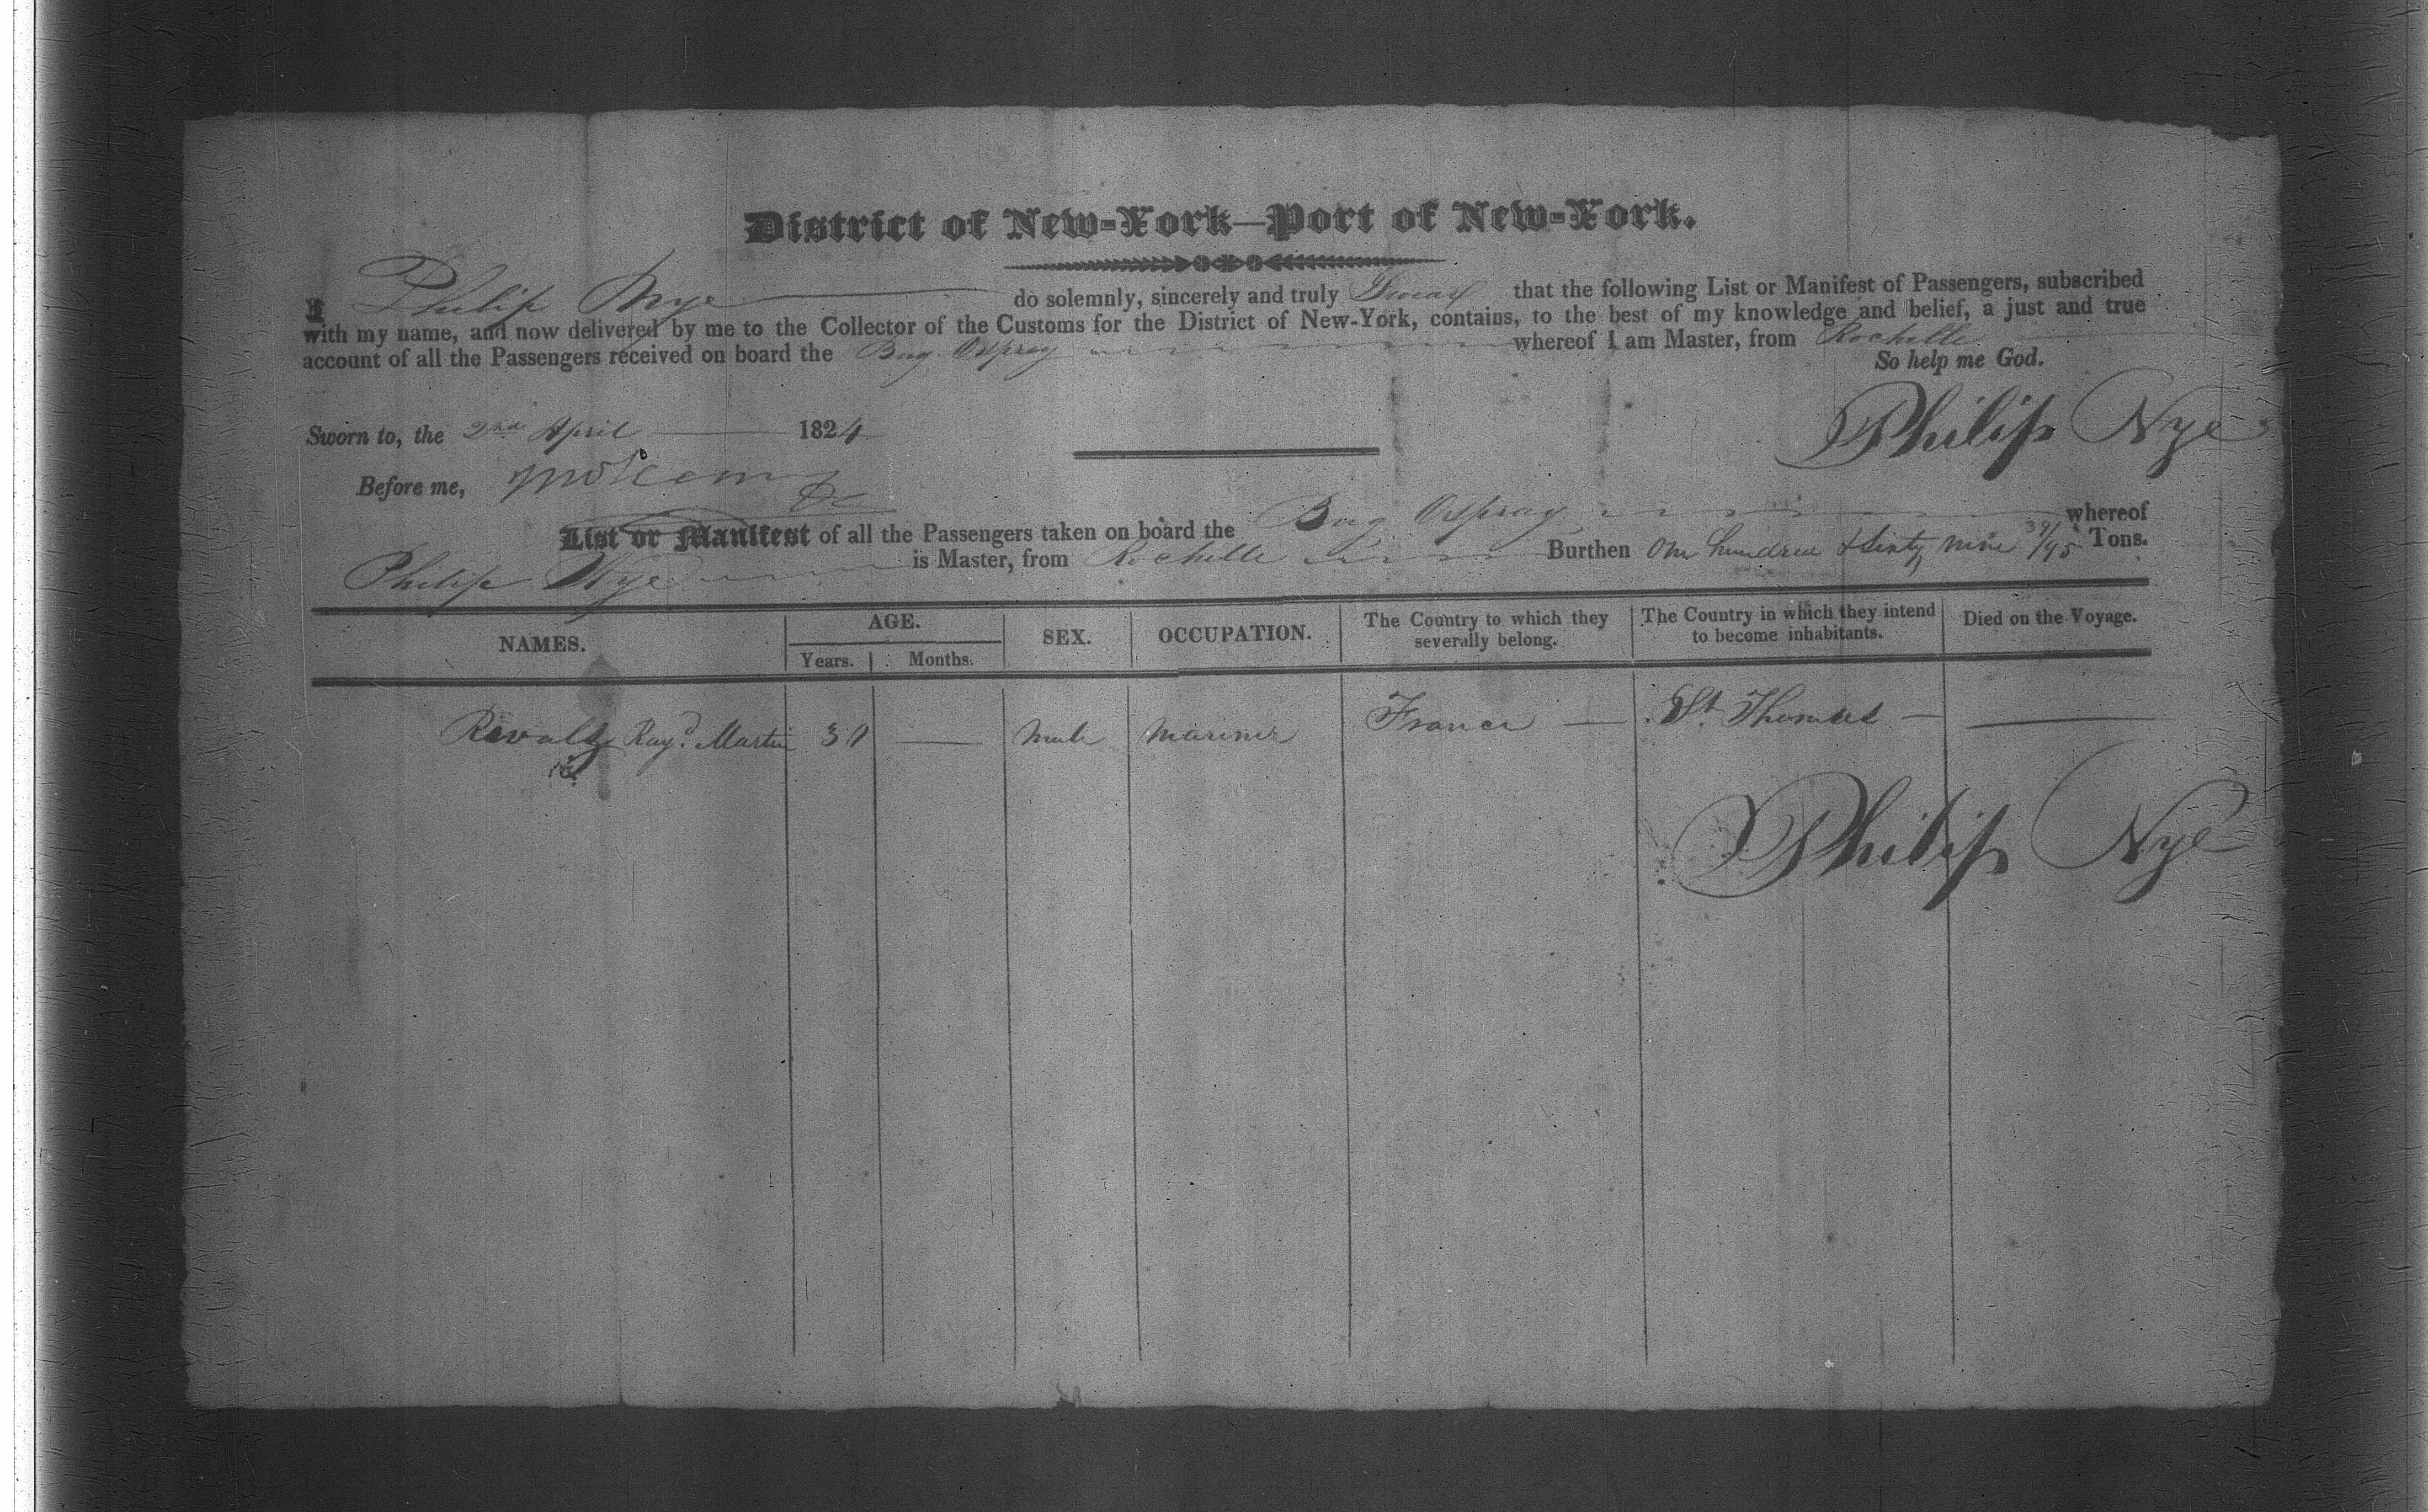 District of New-York—Port of New-York.
I Philip Nye do solemnly, sincerely and truly Swear that the following List or Manifest of Passengers, subscribed
with my name, and now delivered by me to the Collector of the Customs for the District of New-York, contains, to the best of my knowledge and belief, a just and true
account of all the Passengers received on board the Brig Osprey whereof I am Master, from Rochelle
So help me God.
Sworn to, the 2nd April 1824
Philip Nye
Before me,
List or Manifest of all the Passengers taken on board the Brig Osprey whereof
Philip Nye is Master, from Rochelle Burthen One hundred & Sixty nine /95 Tons.
NAMES. AGE. SEX. OCCUPATION. The Country to which they severally belong. The Country in which they intend to become inhabitants. Died on the Voyage.
Years. Months.
Rayd. Martin male Mariner France St. Thomas
Philip Nye